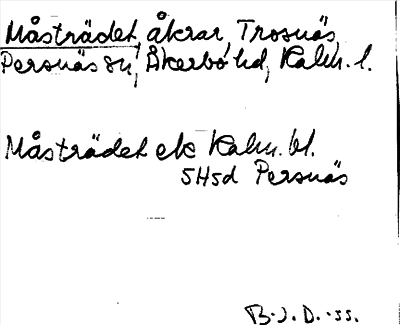 Måsträdet, åkrar, Trosnäs,
Persnäs sn, Åkerbo hd, Kalm. l.
Måsträdet ek Kalm. bl.
5H5d Persnäs
B.J.D. -55.